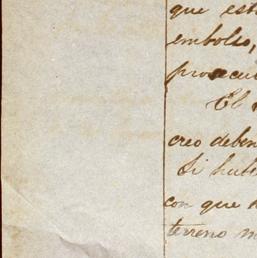 que est
embolso,
prosecu
El
creo deben
Si hub
con que
terreno m